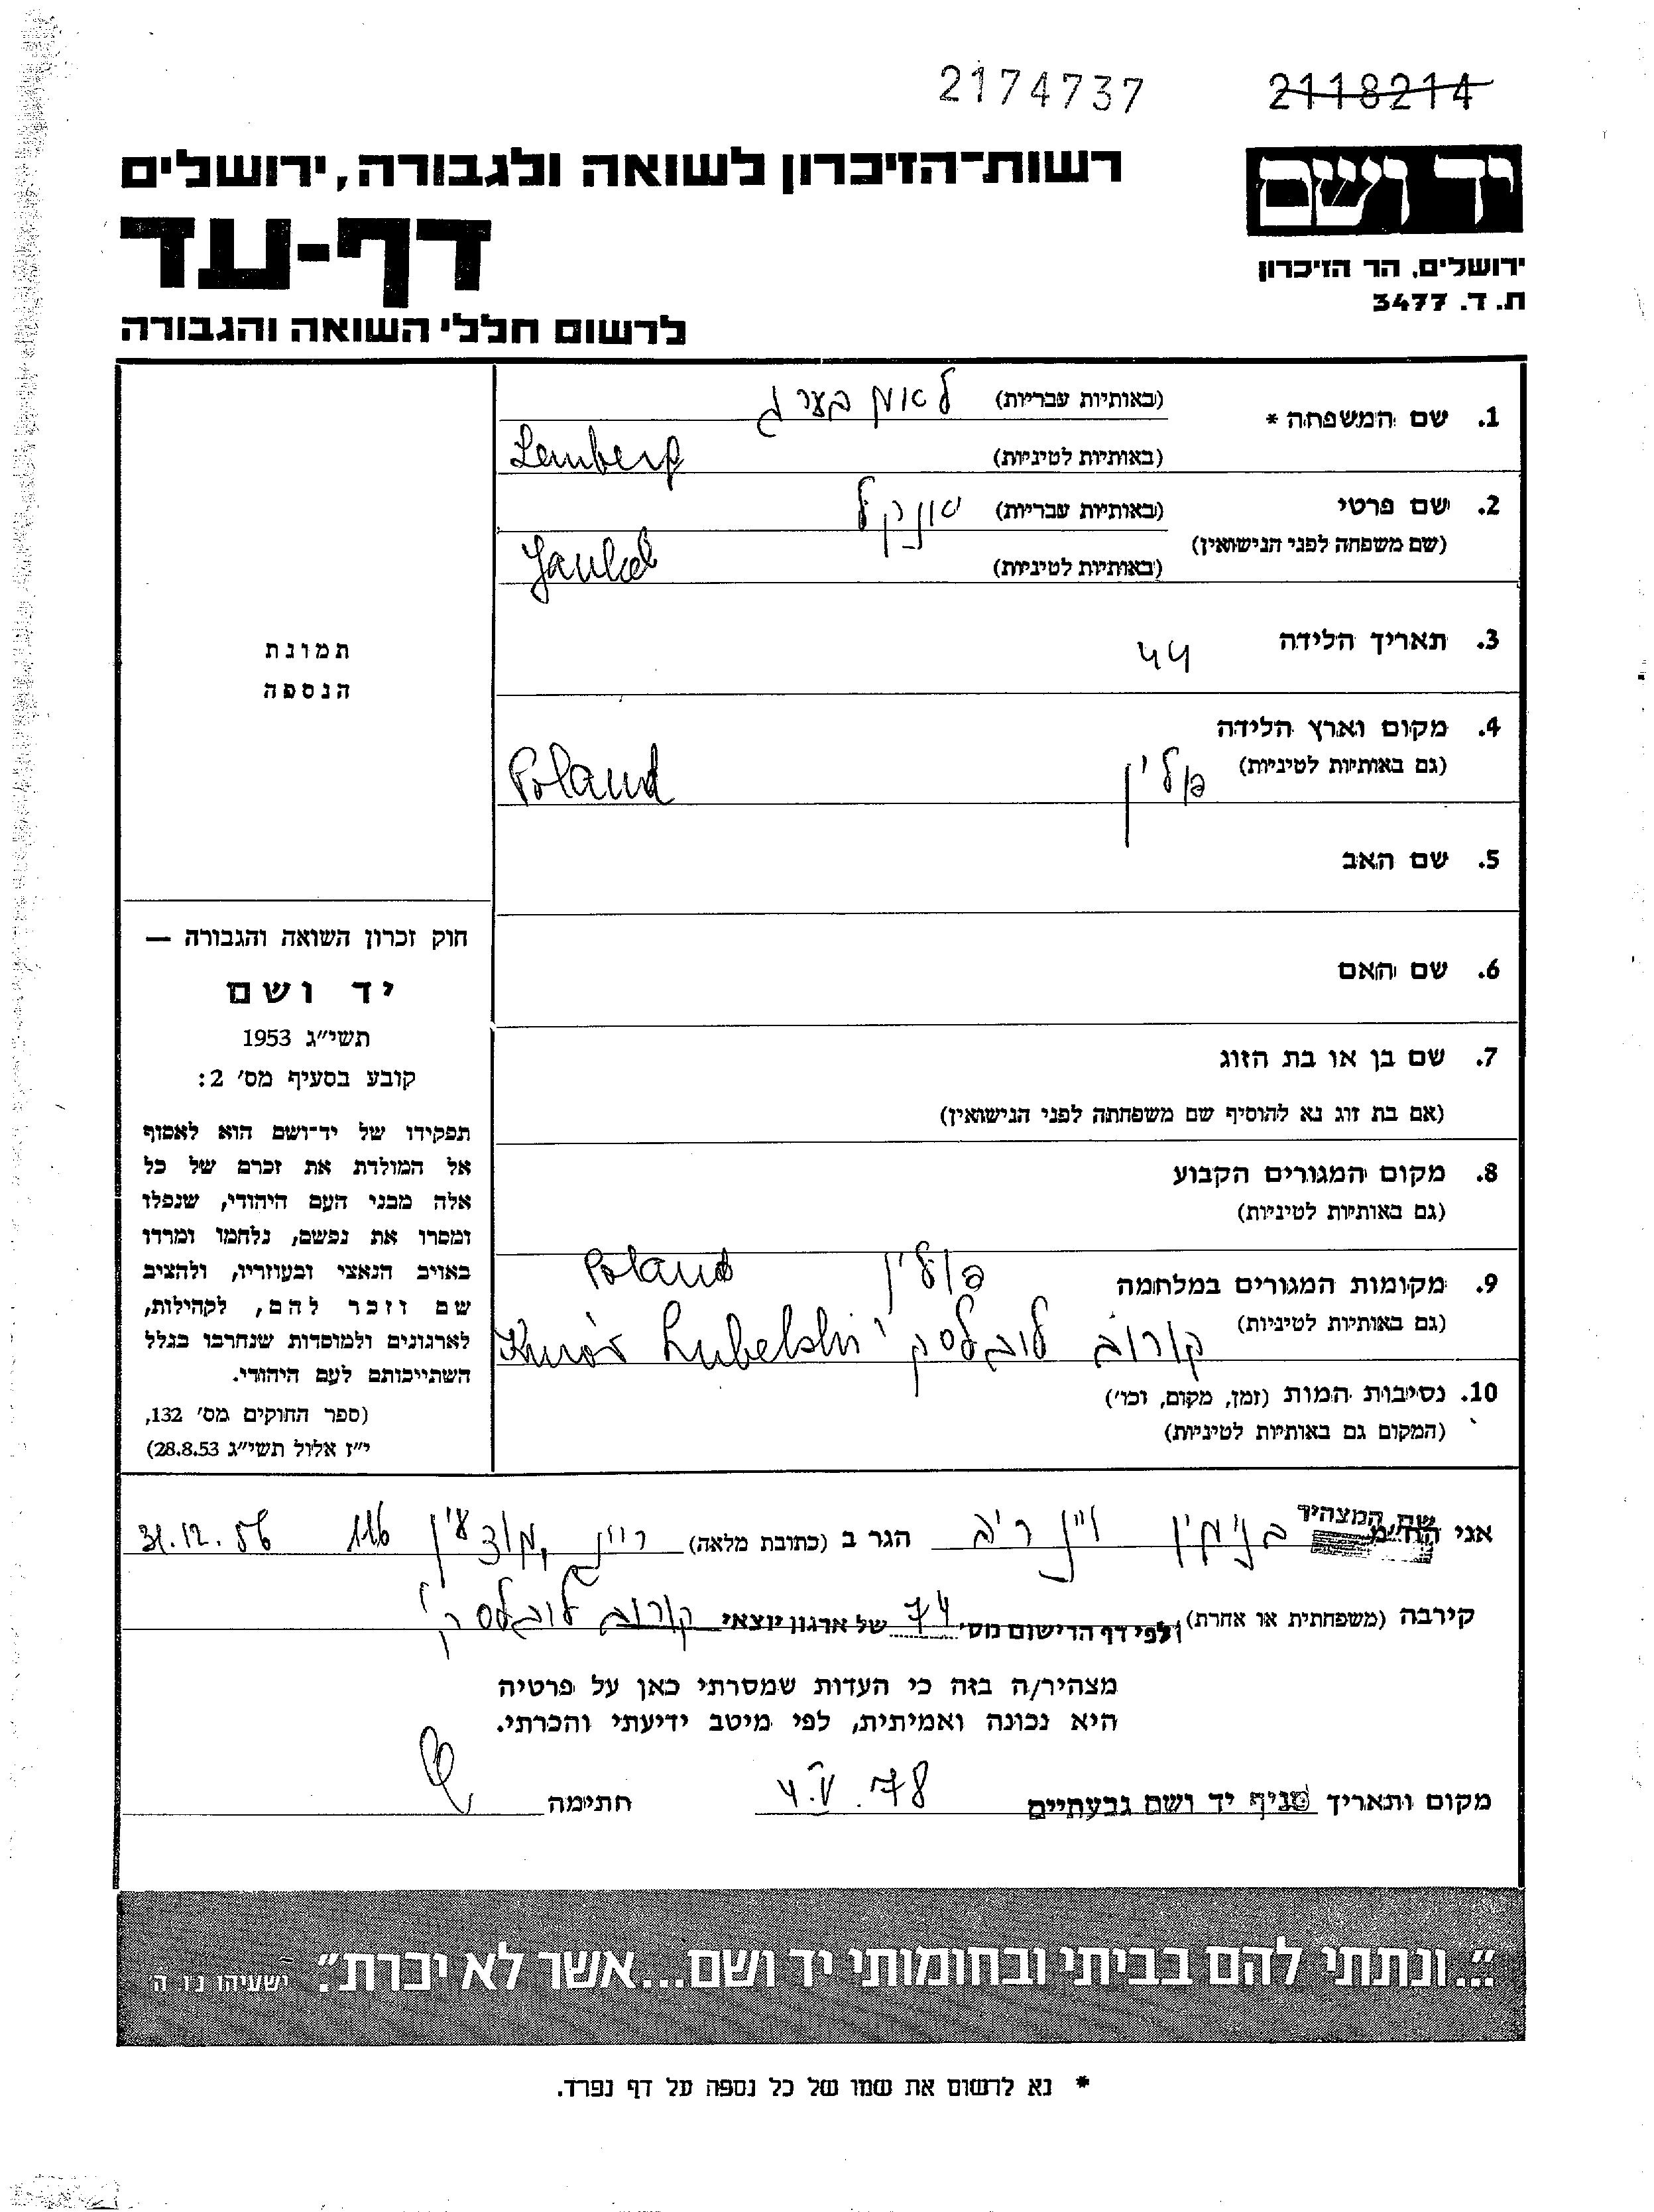 2174737 2118214
רשות־הזיכרון לשואה ולגבורה, ירושלים
יד ושם
דף-עד
ירושלים, הר הזיכרון
ת. ד. 3477
לרשום חללי השואה והגבורה
1. שם המשפחה * (באותיות עבריות) לאמבערג
(באותיות לטיניות) Lemberg
2. שם פרטי (באותיות עבריות) יונקל
(שם משפחה לפני הנישואין) (באותיות לטיניות) Jankel
3. תאריך הלידה 44
4. מקום וארץ הלידה
(גם באותיות לטיניות) פולין Poland
5. שם האב
6. שם האם
7. שם בן או בת הזוג
(אם בת זוג נא להוסיף שם משפחתה לפני הנישואין)
8. מקום המגורים הקבוע
(גם באותיות לטיניות)
9. מקומות המגורים במלחמה פולין Poland
(גם באותיות לטיניות) קורוב לובלסקי Kurów Lubelski
10. נסיבות המות (זמן, מקום, וכו׳)
(המקום גם באותיות לטיניות)
תמונת
הנספה
חוק זכרון השואה והגבורה —
יד ושם
תשי״ג 1953
קובע בסעיף מס׳ 2:
תפקידו של יד־ושם הוא לאסוף
אל המולדת את זכרם של כל
אלה מבני העם היהודי, שנפלו
ומסרו את נפשם, נלחמו ומרדו
באויב הנאצי ובעוזריו, ולהציב
שם וזכר להם, לקהילות,
לארגונים ולמוסדות שנחרבו בגלל
השתייכותם לעם היהודי.
(ספר החוקים מס׳ 132,
י״ז אלול תשי״ג 28.8.53)
שם המצהיר
אני הח״מ בנימין וינריב הגר ב (כתובת מלאה) 116 31.12.56
קירבה (משפחתית או אחרת) ולפי דף הרישום מס׳ 74 של ארגון יוצאי קורוב לובלסקי
מצהיר/ה בזה כי העדות שמסרתי כאן על פרטיה
היא נכונה ואמיתית, לפי מיטב ידיעתי והכרתי.
מקום ותאריך סניף יד ושם גבעתיים 4.V.78 חתימה
"...ונתתי להם בביתי ובחומותי יד ושם...אשר לא יכרת". ישעיהו נ׳ו ה׳
* נא לרשום את שמו של כל נספה על דף נפרד.